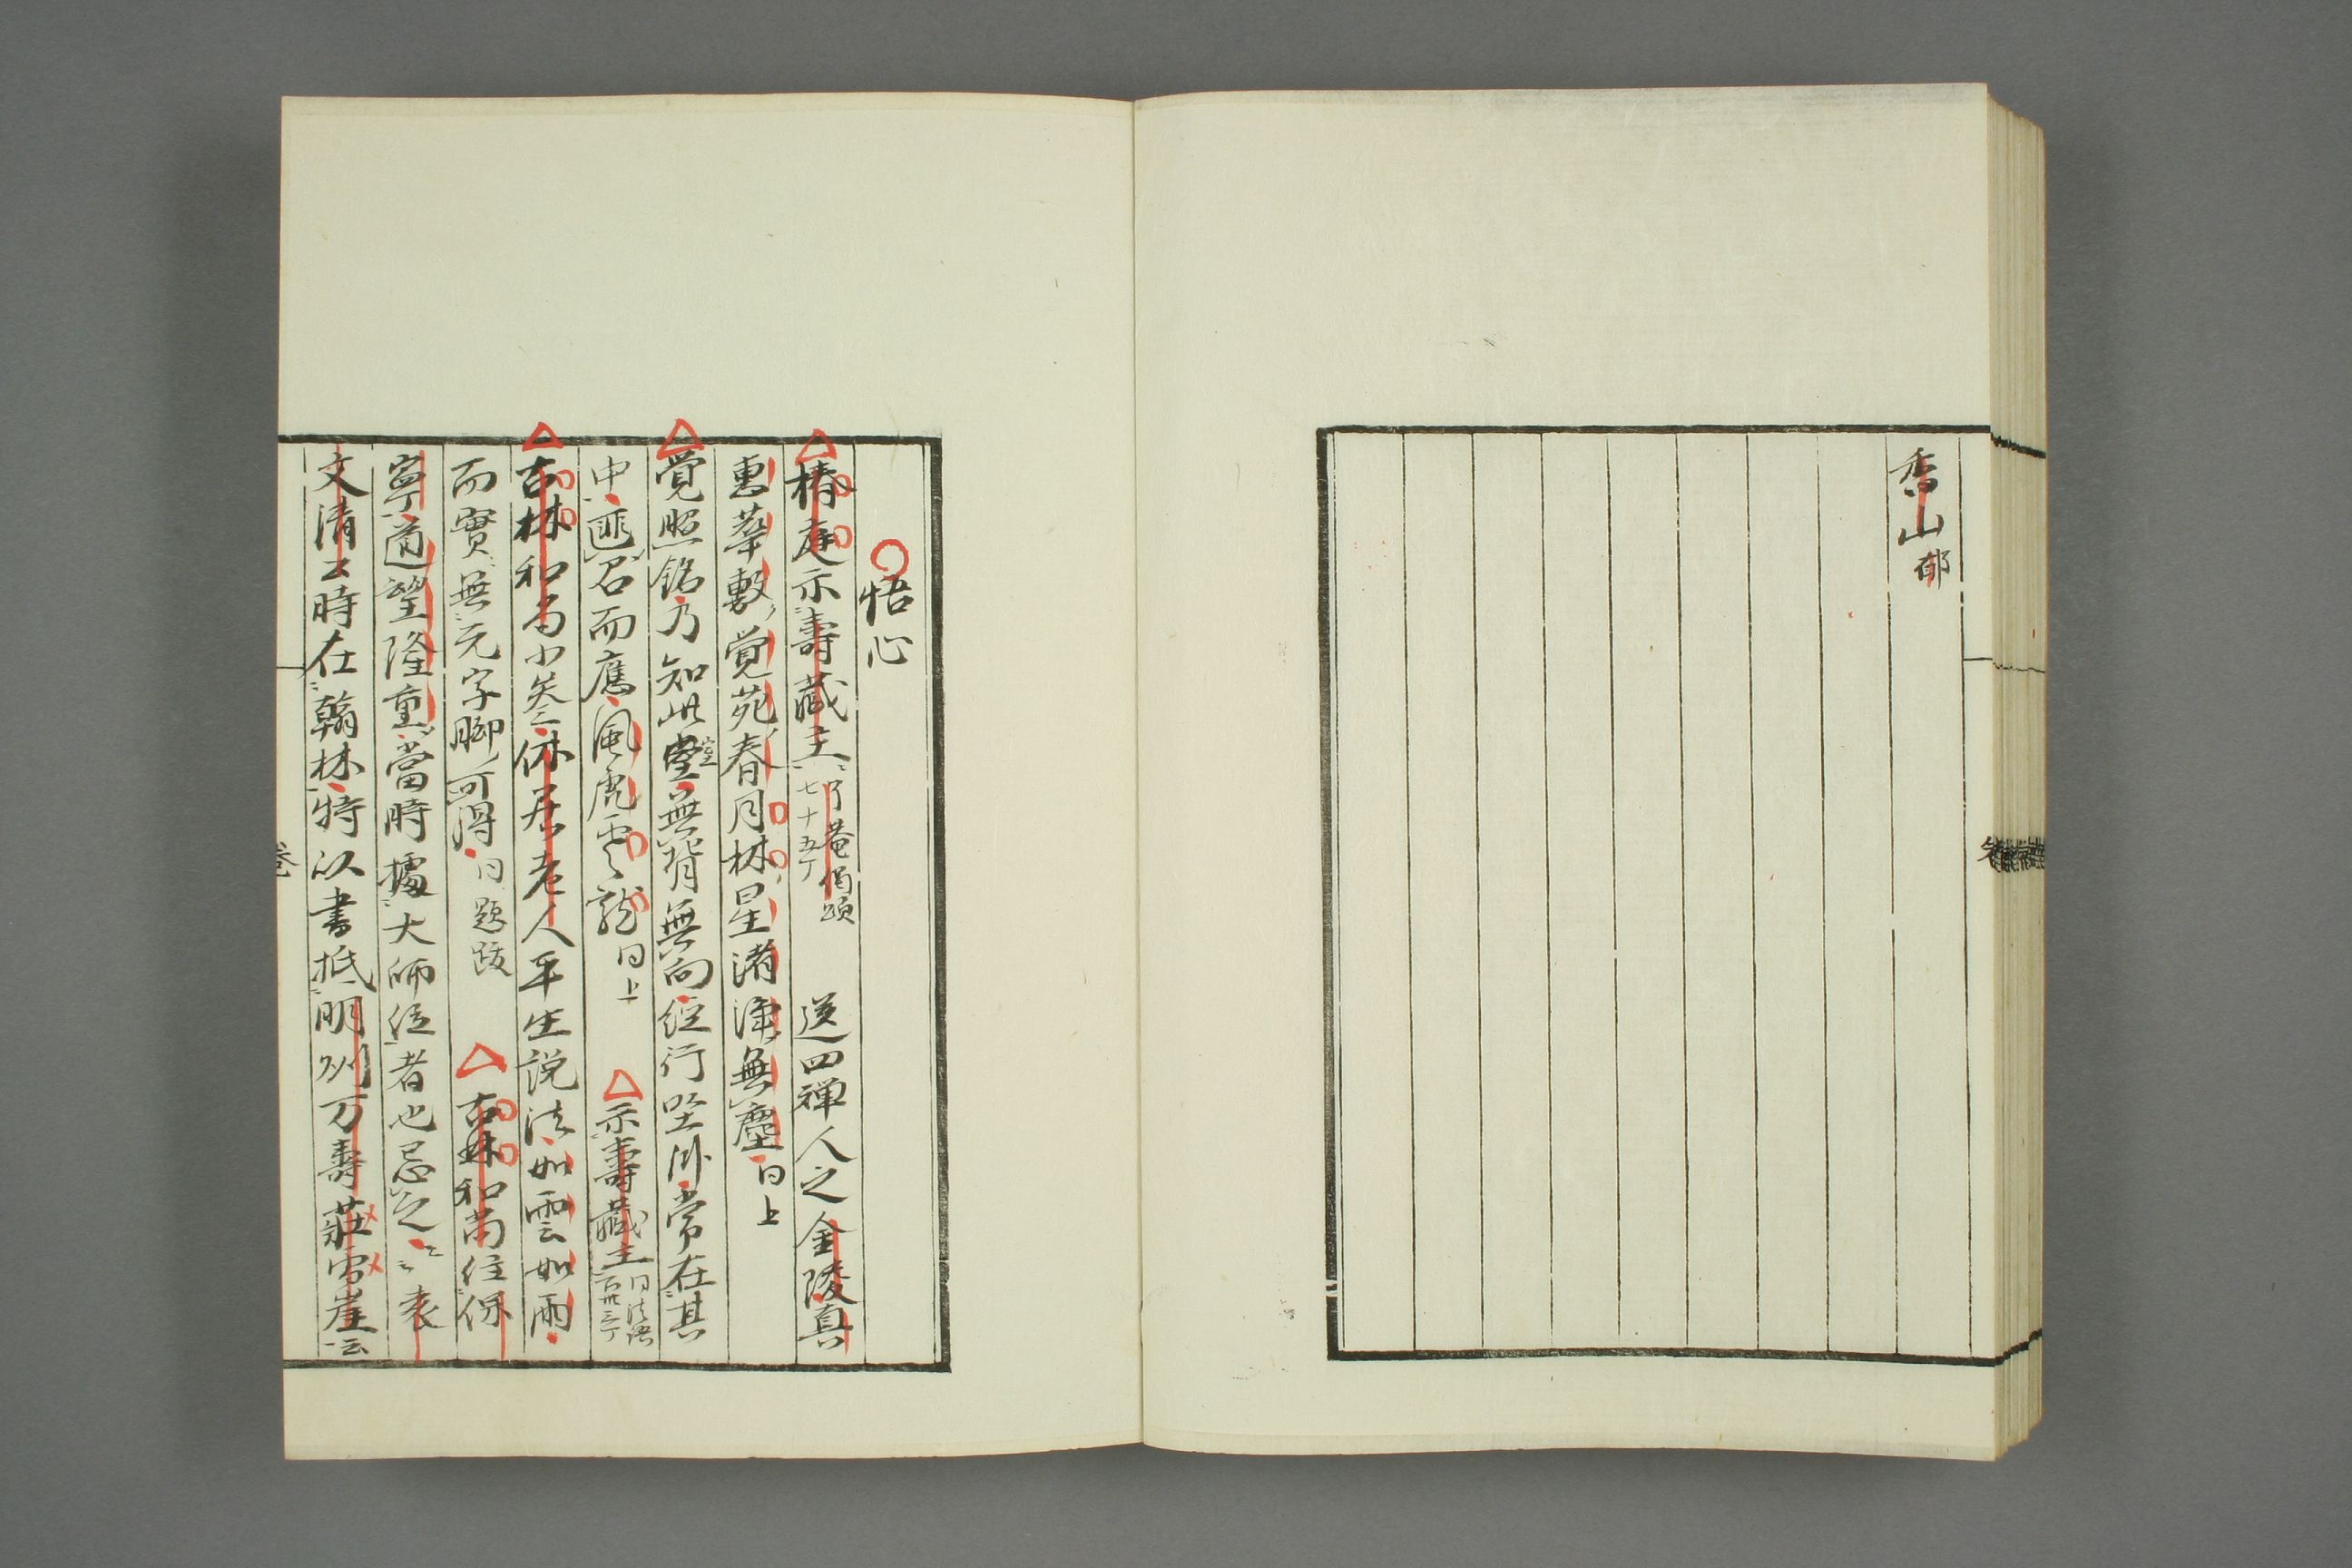 香山郁
悟心
椿庭示壽藏主了菴偈頌七十五丁 送四禅人之金陵真
恵華敷覚苑春月林星渚浄無塵 同上
覚照銘乃知此堂無背無向経行坐卧常在其
中匪召而應風虎雲龍 同上 示壽藏主同法語百卅三丁
古林和尚小参休居老人平生説法如雲如雨
而實無元字脚可得 同題跋 古林和尚住保
寧道望隆重當時據大師位者也忌之 袁
文清公時在翰林特以書抵明州万壽荘雪崖云
巻